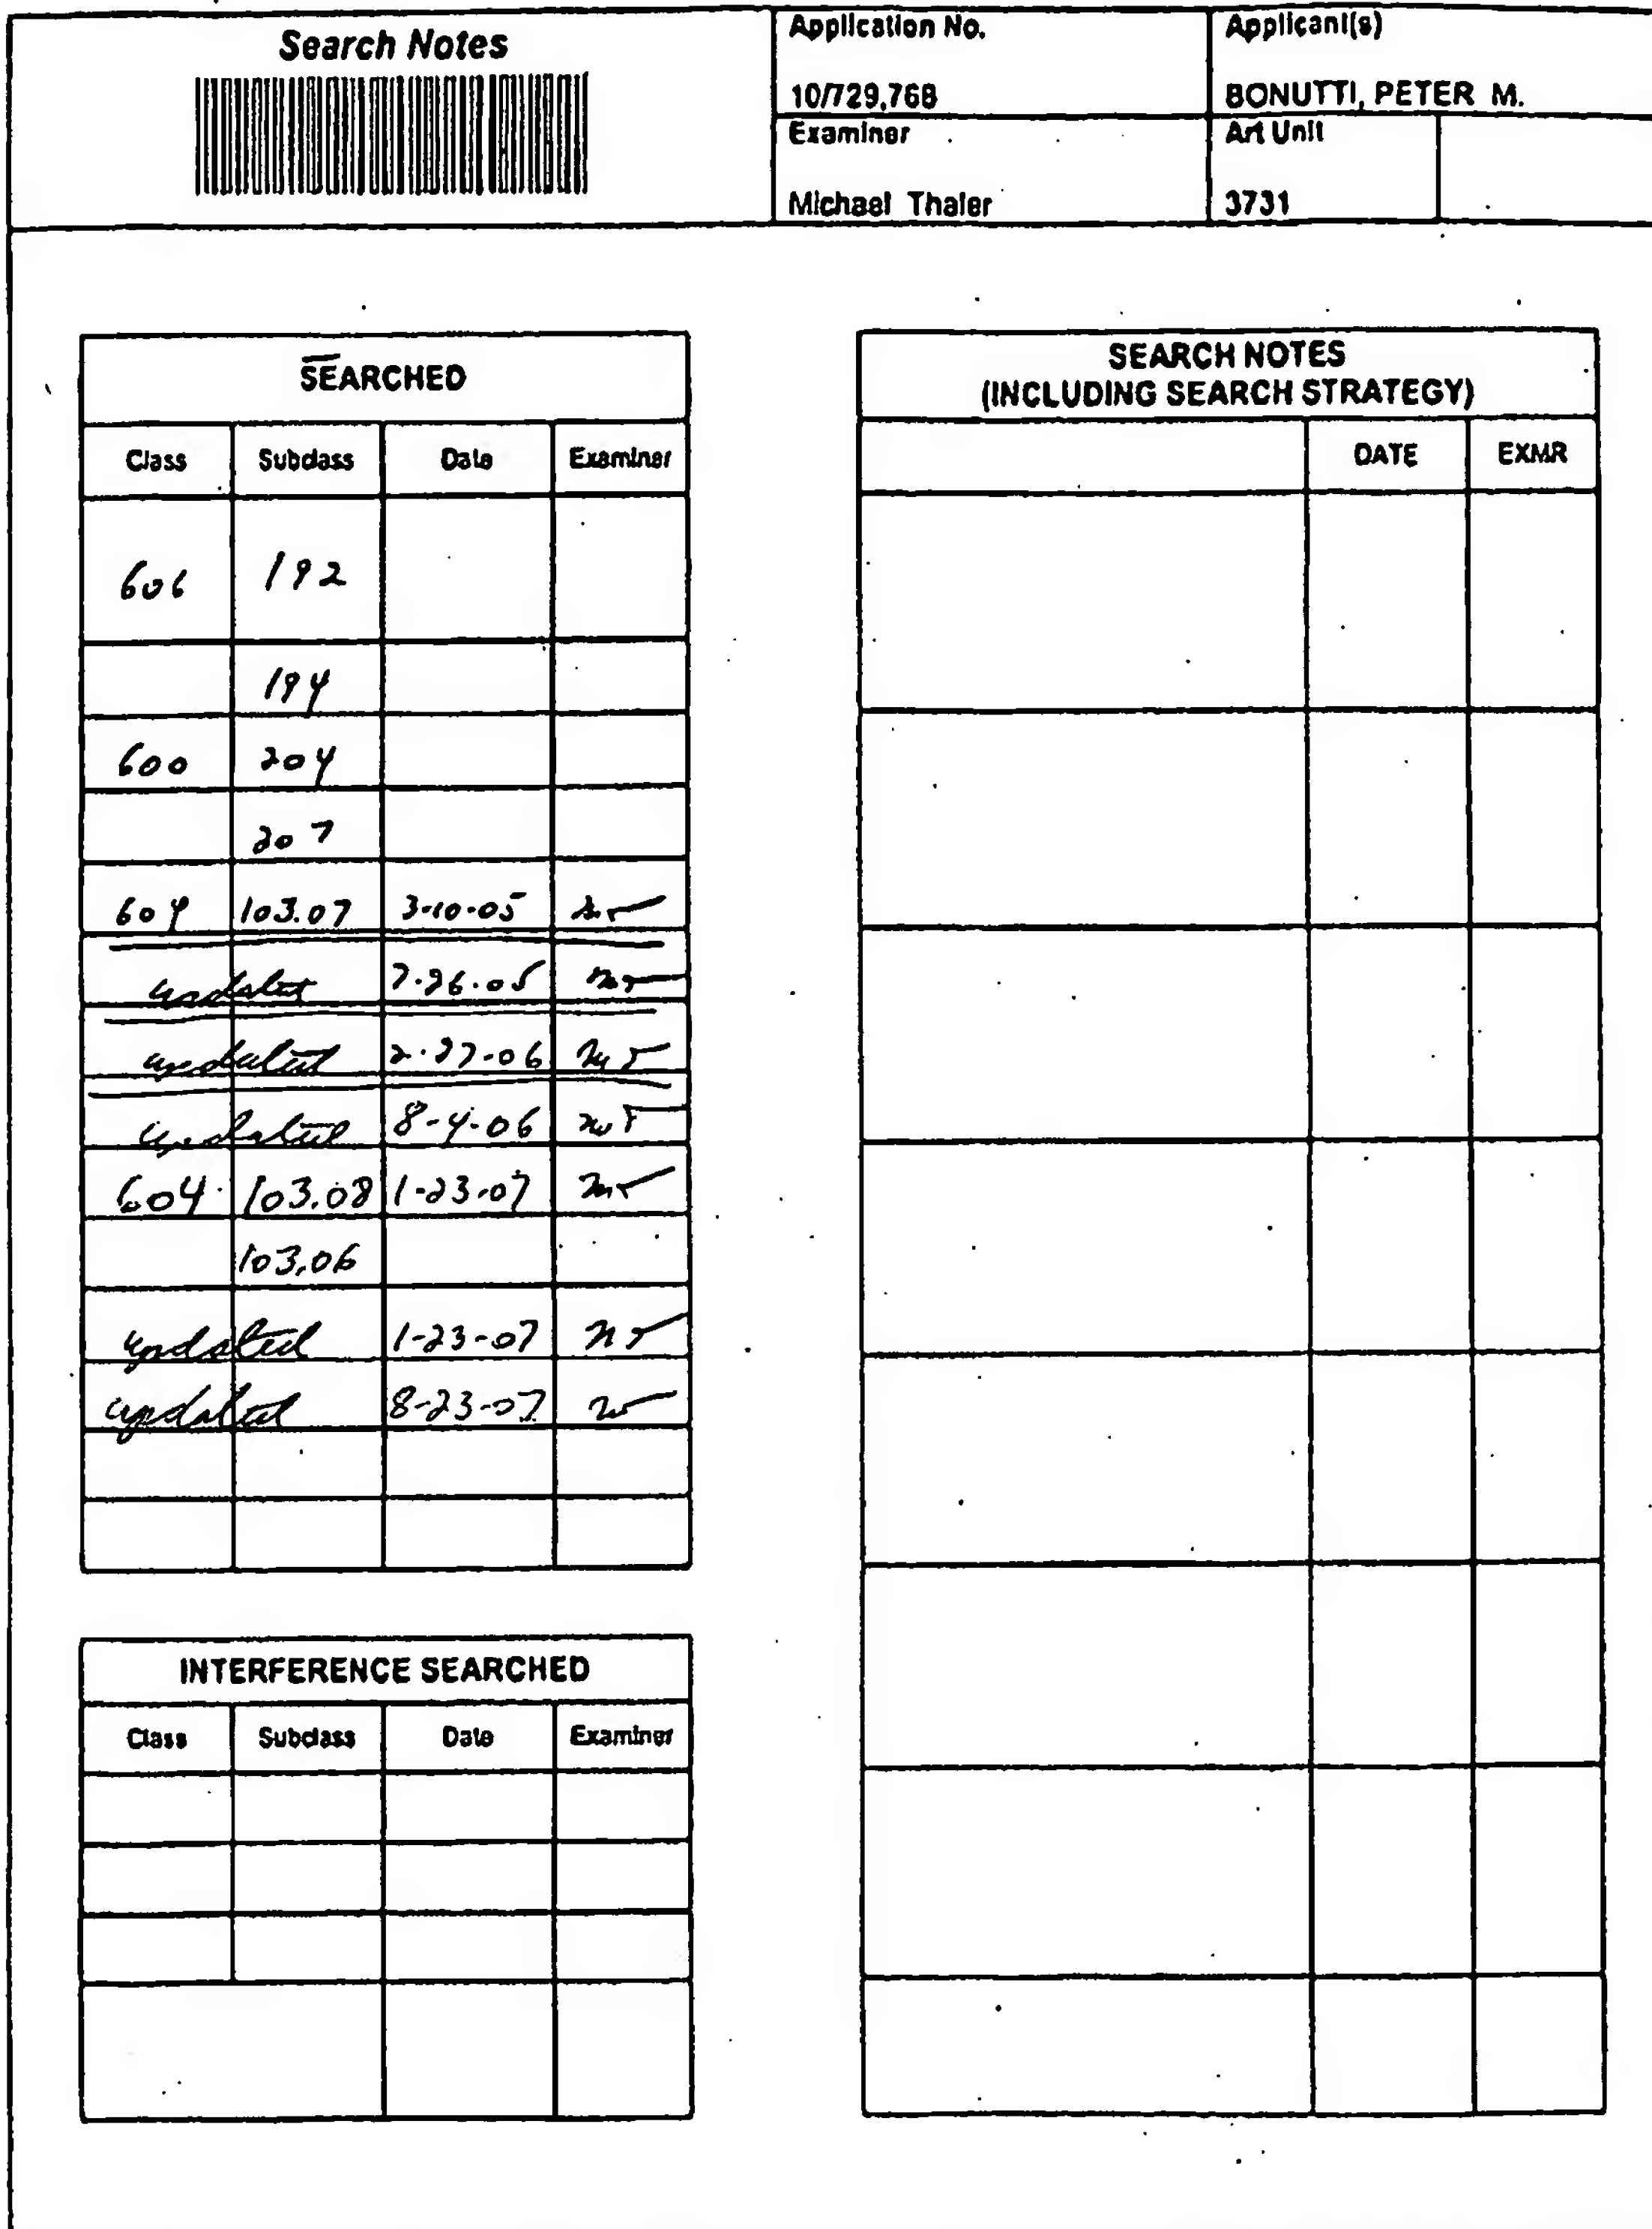 Search Notes
Application No.
Applicant(s)
10/729,768
BONUTTI, PETER M.
Examiner
Art Unit
Michael Thaler
3731
SEARCHED
Class Subclass Date Examiner
606 192
194
600 204
207
604 103.07 3-10-05
updated 7-26-05
updated 2-27-06
updated 8-4-06
604 103.08 1-23-07
103.06
updated 1-23-07
updated 8-23-07
INTERFERENCE SEARCHED
Class Subclass Date Examiner
SEARCH NOTES
(INCLUDING SEARCH STRATEGY)
DATE EXMR